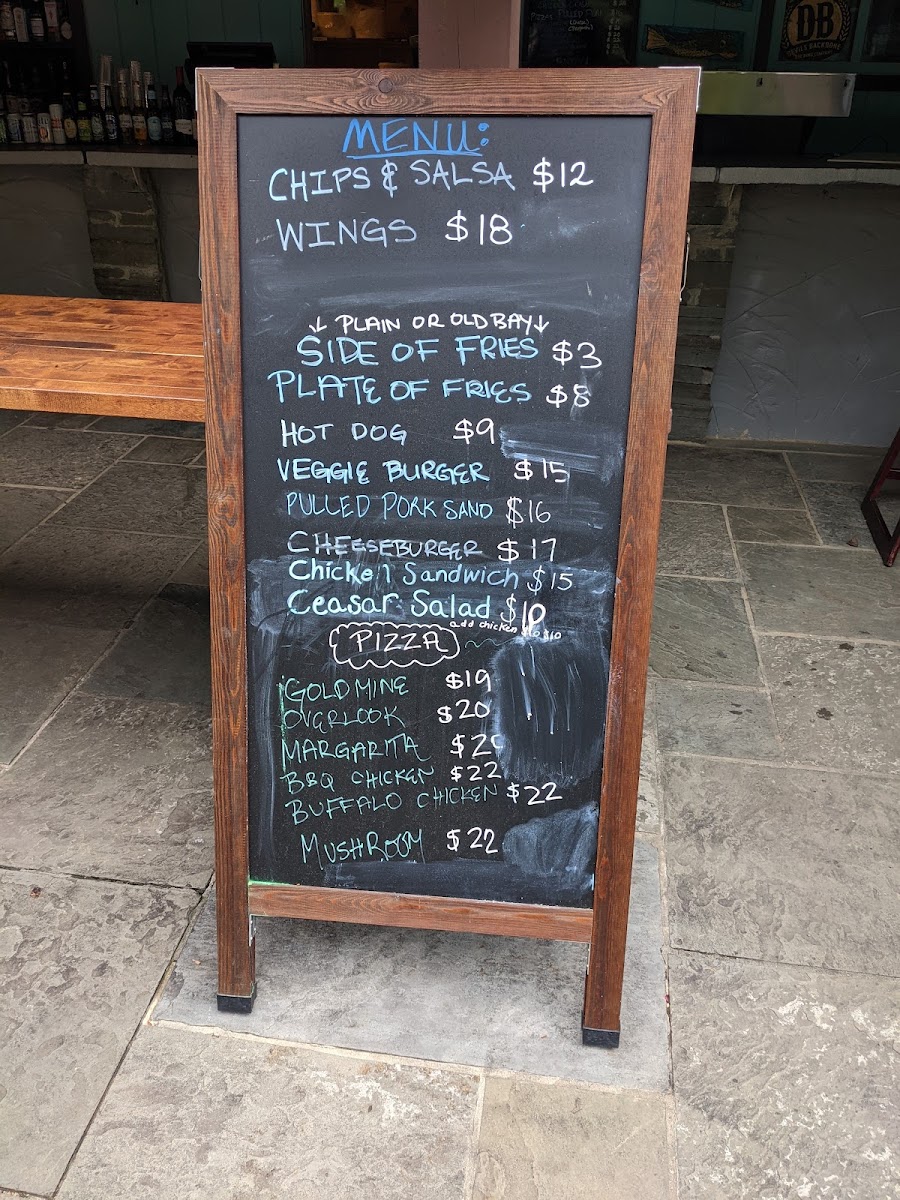 MENU:
CHIPS & SALSA $12
WINGS $18
↓ PLAIN OR OLD BAY ↓
SIDE OF FRIES $3
PLATE OF FRIES $8
HOT DOG $9
VEGGIE BURGER $15
PULLED PORK SAND $16
CHEESEBURGER $17
Chicken Sandwich $15
Ceasar Salad $10
add chicken $10
PIZZA
GOLD MINE $19
OVERLOOK $20
MARGARITA
BBQ CHICKEN $22
BUFFALO CHICKEN $22
MUSHROOM $22
DB
DEVILS BACKBONE